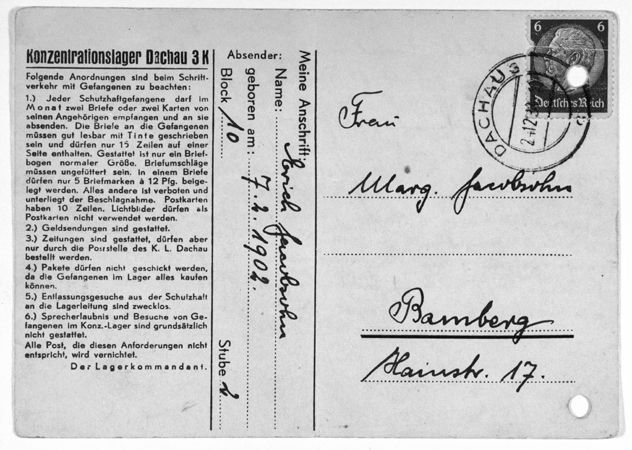 Konzentrationslager Dachau 3 K
Folgende Anordnungen sind beim Schrift-
verkehr mit Gefangenen zu beachten:
1.) Jeder Schutzhaftgefangene darf im
Monat zwei Briefe oder zwei Karten von
seinen Angehörigen empfangen und an sie
absenden. Die Briefe an die Gefangenen
müssen gut lesbar mit Tinte geschrieben
sein und dürfen nur 15 Zeilen auf einer
Seite enthalten. Gestattet ist nur ein Brief-
bogen normaler Größe. Briefumschläge
müssen ungefüttert sein. In einem Briefe
dürfen nur 5 Briefmarken à 12 Pfg. beige-
legt werden. Alles andere ist verboten und
unterliegt der Beschlagnahme. Postkarten
haben 10 Zeilen. Lichtbilder dürfen als
Postkarten nicht verwendet werden.
2.) Geldsendungen sind gestattet.
3.) Zeitungen sind gestattet, dürfen aber
nur durch die Poststelle des K. L. Dachau
bestellt werden.
4.) Pakete dürfen nicht geschickt werden,
da die Gefangenen im Lager alles kaufen
können.
5.) Entlassungsgesuche aus der Schutzhaft
an die Lagerleitung sind zwecklos.
6.) Sprecherlaubnis und Besuche von Ge-
fangenen im Konz.-Lager sind grundsätzlich
nicht gestattet.
Alle Post, die diesen Anforderungen nicht
entspricht, wird vernichtet.
Der Lagerkommandant.
Absender:
Meine Anschrift:
Name: Jacobsohn
geboren am: 7. 2. 1902.
Block 10 Stube 2
6 6
Deutsches Reich
DACHAU 3
Frau
Marg. Jacobsohn
Bamberg
Hainstr. 17.